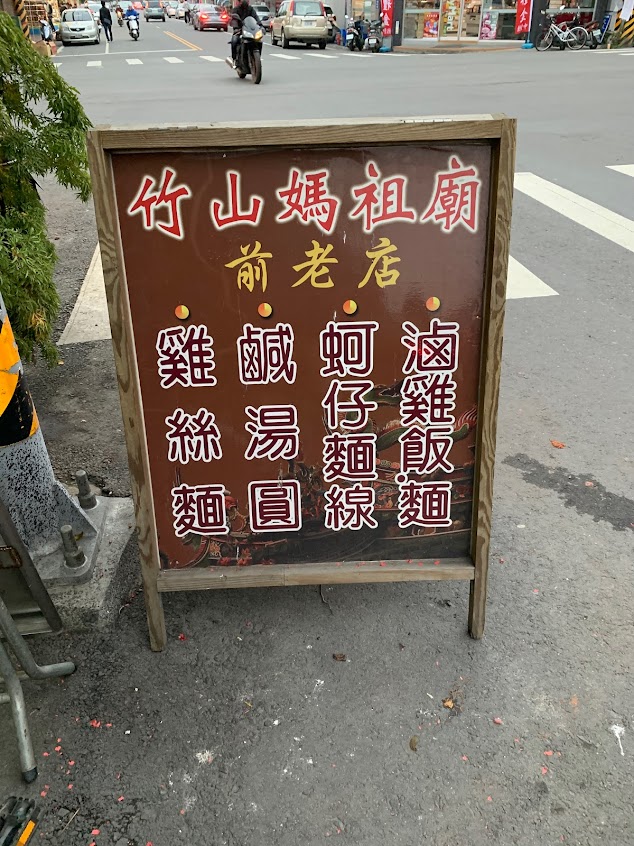 竹山媽祖廟
前老店
滷雞飯.麵
蚵仔麵線
鹹湯圓
雞絲麵